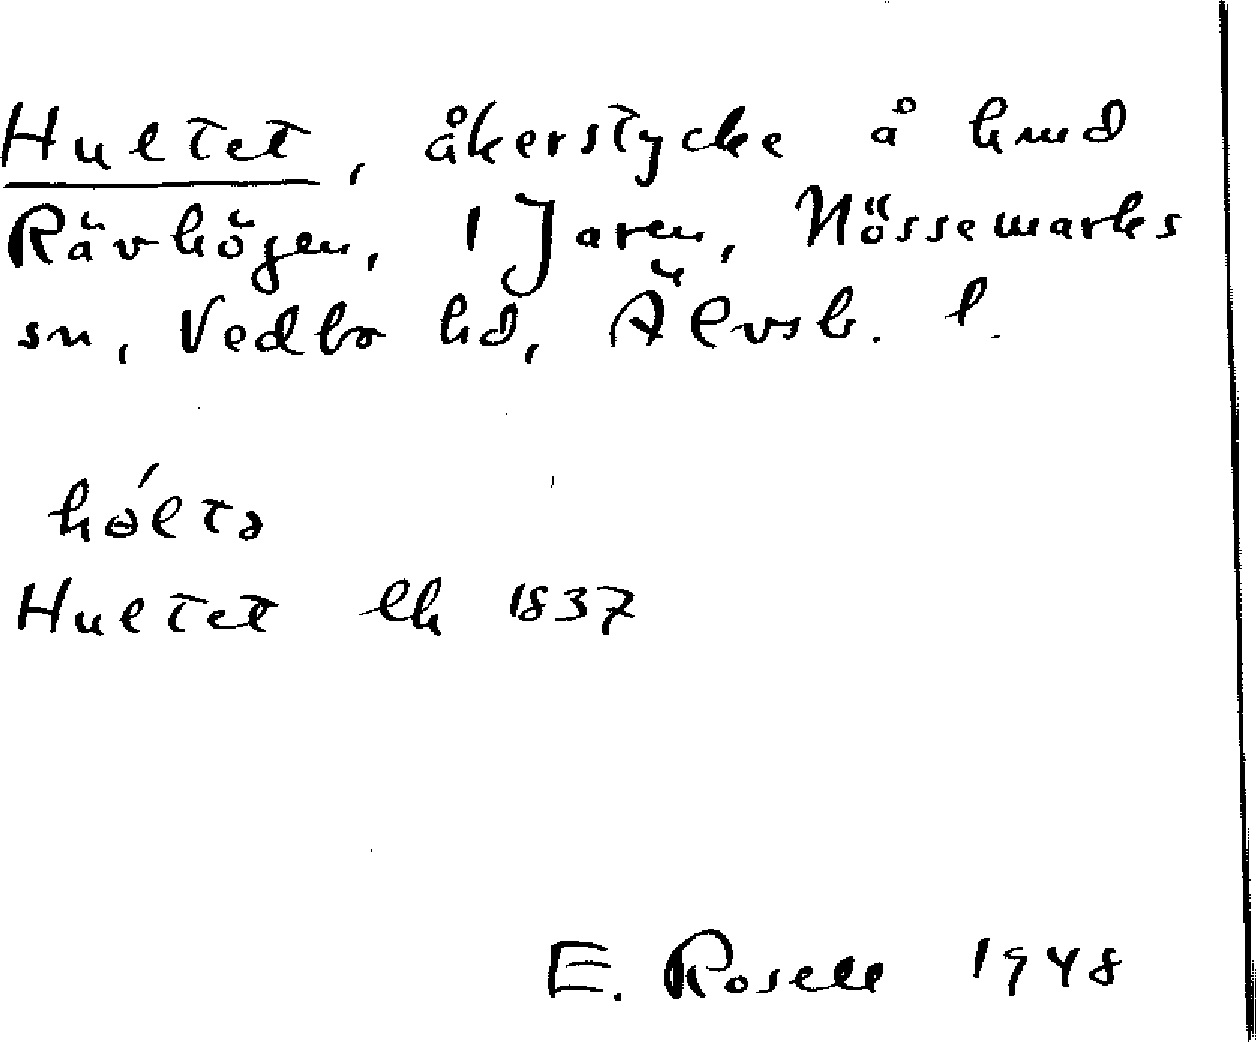 Hultet, åkerstycke å hmd
Rävhögen, 1 Jaren, Nössemarks
sn, Vedbo hd, Älvsb. l.
hɵ́ltə
Hultet lh 1837
E. Rosell 1948